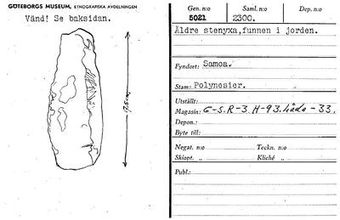 GÖTEBORGS MUSEUM, ETNOGRAFISKA AVDELNINGEN
Vänd! Se baksidan.
17,5 cm
Gen. n:o Saml. n:o Dep. n:o
5021 2300.
Äldre stenyxa, funnen i jorden.
Fyndort: Samoa.
Stam: Polynesier.
Utställt:
Magasin: 6-5. R-3. H-93. låda-33.
Depon.:
Byte till:
Negat. n:o Teckn. n:o
Skiopt. „ Kliché „
Publ: